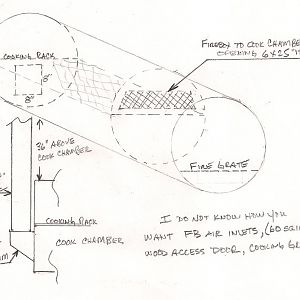 COOKING RACK
8"
8"
FIREBOX TO COOK CHAMBER
OPENING 6X25"
FIRE GRATE
36" ABOVE
COOK CHAMBER
COOKING RACK
COOK CHAMBER
I DO NOT KNOW HOW YOU
WANT FB AIR INLETS,
WOOD ACCESS DOOR, COOKING